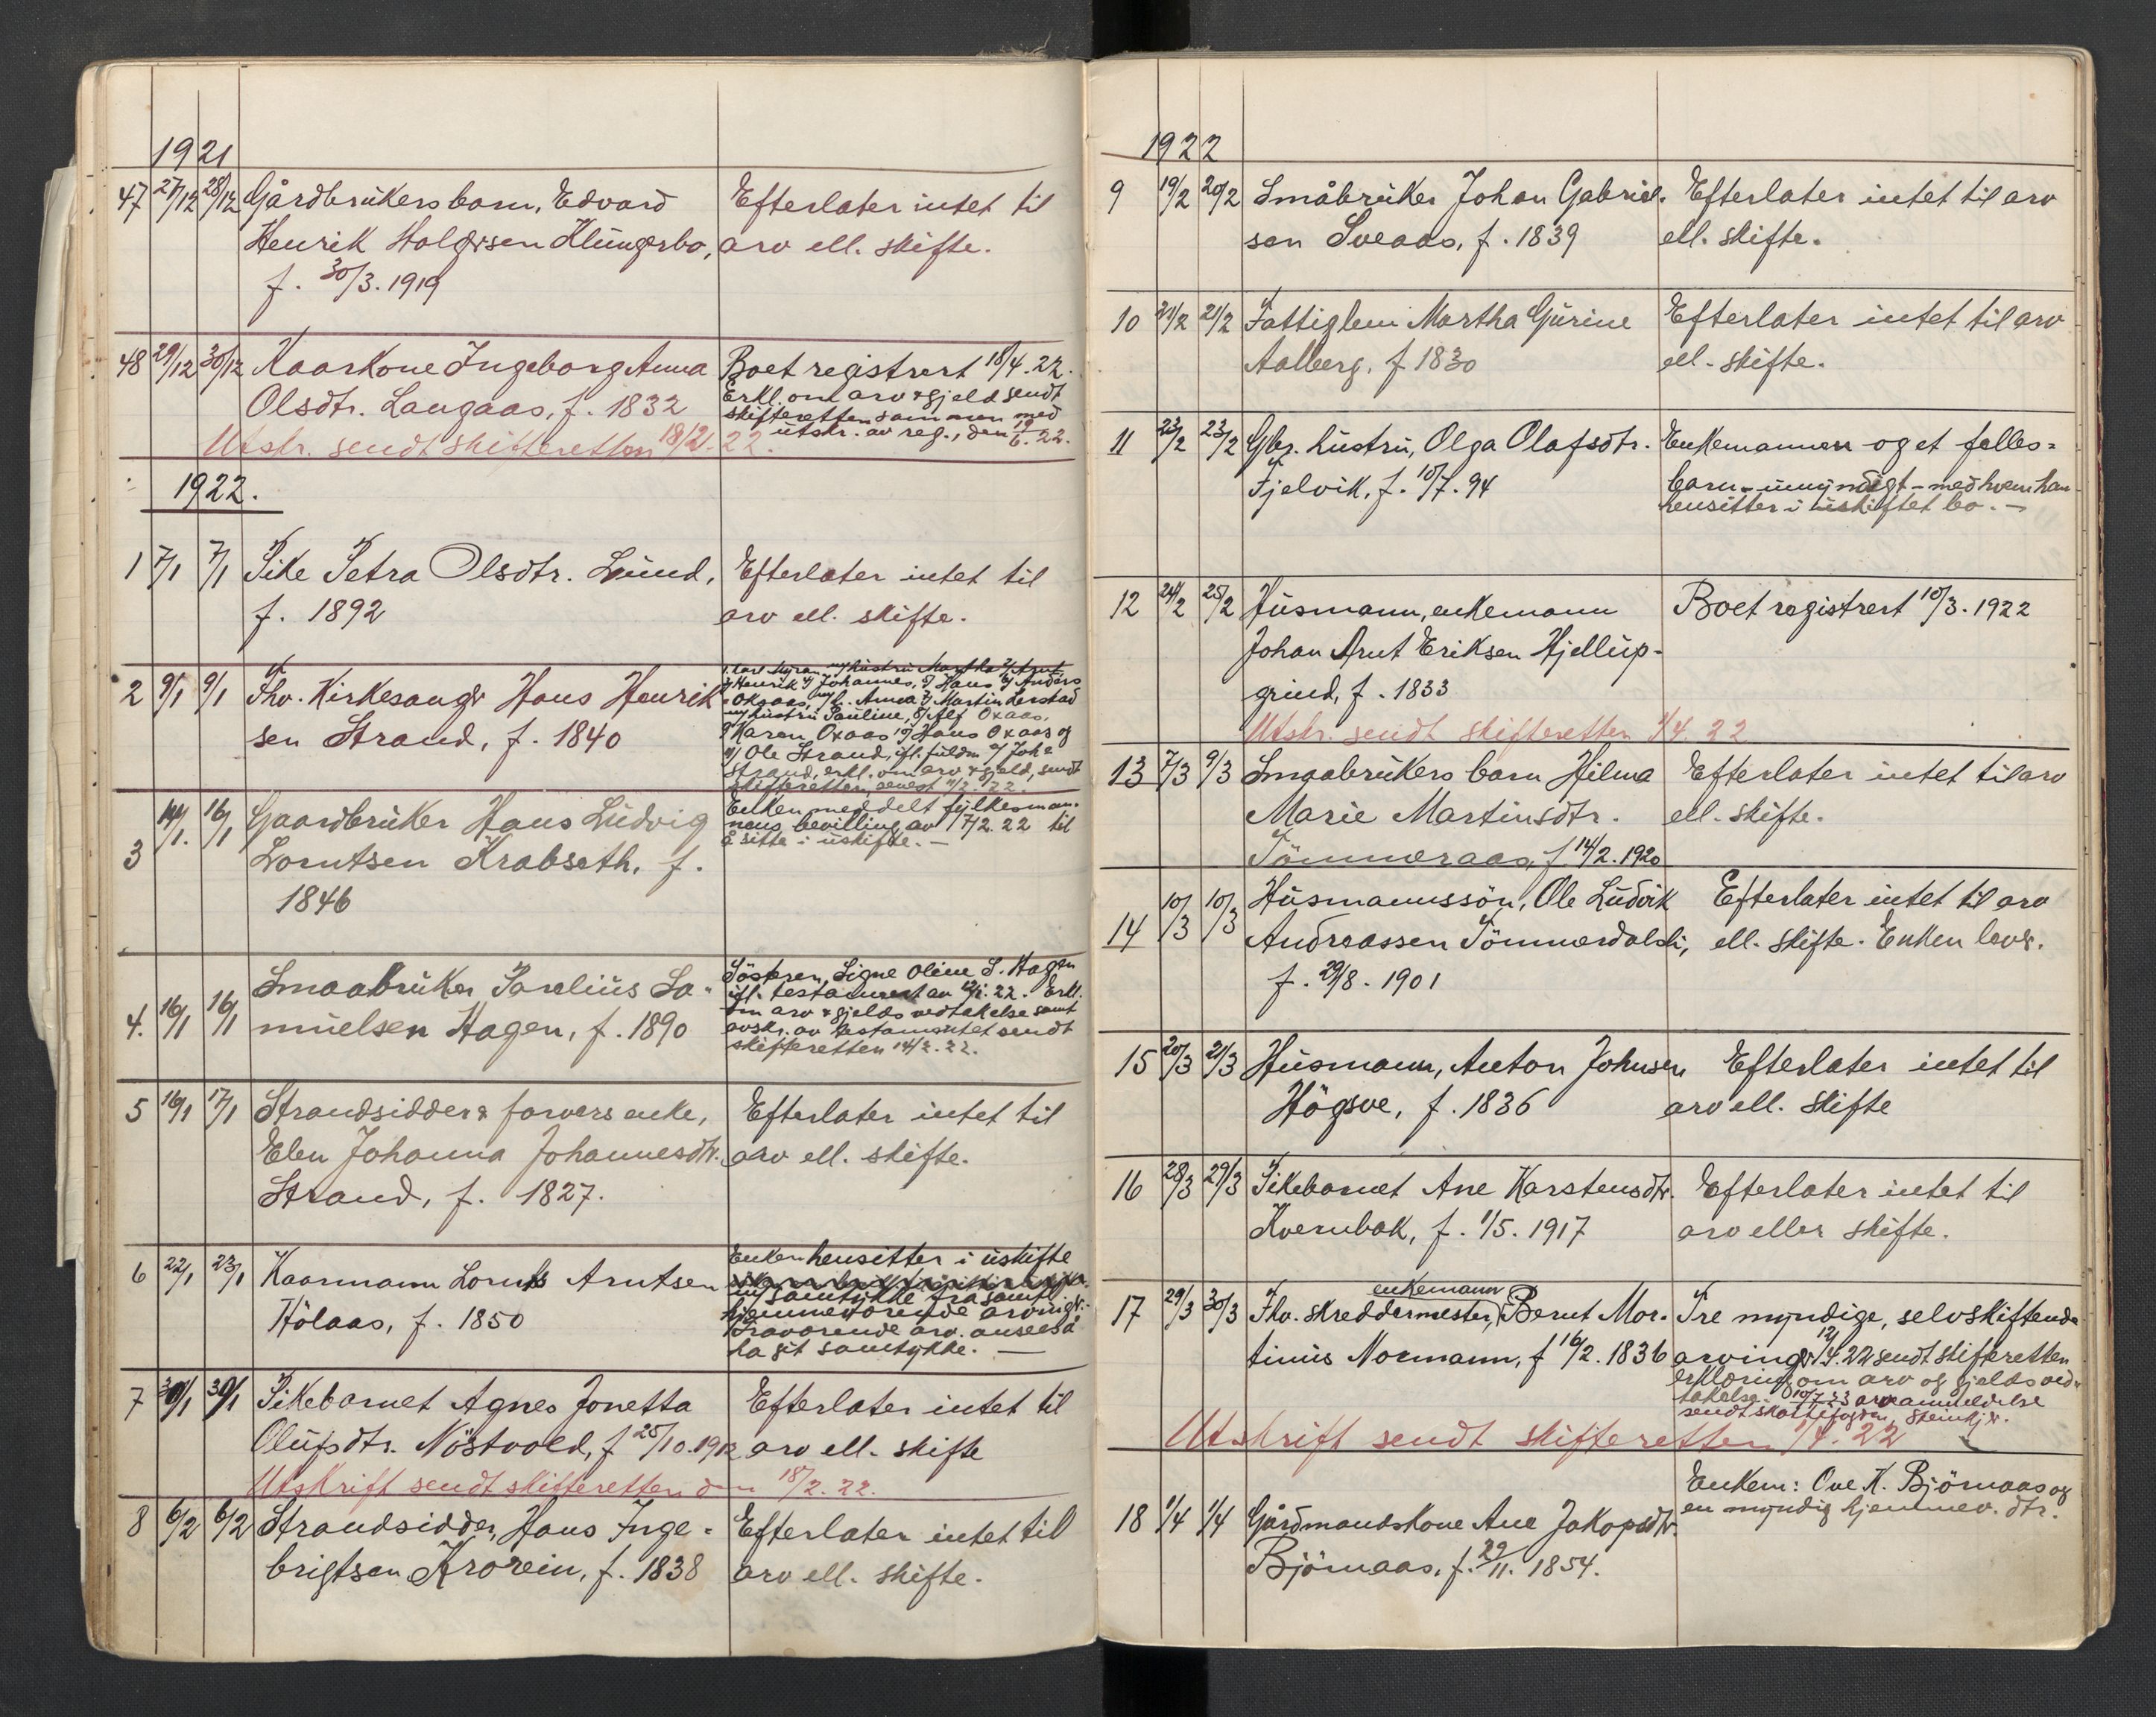 1921
47 27/12 28/12 Gårdbrukers barn, Edvard Efterlater intet til
Henrik Holgersen Klungerbo, arv ell. skifte.
f. 30/3. 1919
48 29/12 30/12 Kaarkone Ingeborg Anna Boet registrert 18/4. 22.
Olsdtr. Langaas, f. 1832 Erkl. om arv & gjeld sendt
skifteretten sammen med
utskr. av reg., den 19/6. 22.
Utskr. sendt skifteretten 18/2. 22.
1922.
1 7/1 7/1 Pike Petra Olsdtr. Lund, Efterlater intet til
f. 1892 arv ell. skifte.
2 9/1 9/1 Fhv. Kirkesanger Hans Henrik
sen Strand, f. 1840
Henrik 4/ Johannes, 5/ Hans 6/ Anders
Oksaas, Anna 7/ Martin Lerstad
m/ hustru Pauline, 8/ Alf Oxaas,
9/ Karen Oxaas 10/ Hans Oxaas og
11/ Ole Strand, ifl. fuldm. Joh
Strand, erkl. om arv & gjeld, sendt
skifteretten
3 14/1. 16/1 Gaardbruker Hans Ludvig Enken meddelt fylkesman-
Lorntsen Krabseth, f. nens bevilling av 17/2. 22 til
1846 å sitte i uskifte. —
4. 16/1 16/1 Smaabruker Parelius Sa- Søsteren, Signe Oline S. Hagen
muelsen Hagen, f. 1890 ifl. testament av 22. Erkl.
om arv & gjelds vedtakelse samt
avskr. av testamentet sendt
skifteretten 14/2. 22.
5 16/1 17/1 Strandsidder & farvers enke, Efterlater intet til
Elen Johanna Johannesdtr. arv ell. skifte.
Strand, f. 1827.
6 22/1 23/1 Kaarmann Lornts Arntsen Enken hensitter i uskifte
Hølaas, f. 1850 m/ samtykke fra samtl.
hjemmeværende arvinger.
Fraværende arv. ansees å
ha git samtykke. —
7 30/1 30/1 Pikebarnet Agnes Jonetta Efterlater intet til
Olufsdtr. Nöstvold, f 25/10. 1912 arv ell. skifte
Utskrift sendt skifteretten den 18/2. 22.
8 6/2 6/2 Strandsidder, Hans Inge- Efterlater intet til
brigtsen Krorein, f. 1838 arv ell. skifte.
1922
9 19/2 20/2 Småbruker Johan Gabriel- Efterlater intet til arv
sen Sveaas, f. 1839 ell. skifte.
10 21/2 21/2 Fattiglem Martha Gurine Efterlater intet til arv
Aalberg, f 1830 ell. skifte.
11 23/2 23/2 Gbr. hustru, Olga Olafsdtr. Enkemannen og et felles-
Fjelvik, f. 10/7. 94 barn – umyndigt – med hvem han
hensitter i uskiftet bo. –
12 24/2 25/2 Husmann, enkemann Boet registrert 10/3. 1922
Johan Arnt Eriksen Hjellup-
grind, f. 1833
Utskr. sendt skifteretten 1/4. 22
13 7/3 9/3 Smaabrukers barn Hilma Efterlater intet til arv
Marie Martinsdtr. ell. skifte.
Tömmeraas, f 14/2. 1920
14 10/3 10/3 Husmannssön, Ole Ludvik Efterlater intet til arv
Andreassen Tömmerdalsli, ell. skifte. Enken lever.
f. 29/8. 1901
15 20/3 21/3 Husmann, Anton Johnsen Efterlater intet til
Högsve, f. 1836 arv ell. skifte
16 28/3 29/3 Pikebarnet Ane Karstensdtr. Efterlater intet til
Kvernbak, f. 1/5. 1917 arv eller skifte.
17 29/3 30/3 Fhv. skreddermester, enkemann Bernt Mar- Tre myndige, selvskiftende
tinus Normann, f 16/2. 1836 arvinger. 12/4. 22 sendt skifteretten
erklæring om arv og gjelds ved-
takelse. 10/7. 23 arveanmeldelse
sendt skattefogden, Steinkjer.
Utskrift sendt skifteretten 1/4. 22
18 1/4 1/4 Gårdmandskone Ane Jakopsdtr. Enkem: Ove K. Björnaas og
Björnaas, f. 29/11. 1854. en myndig hjemmev. dtr.